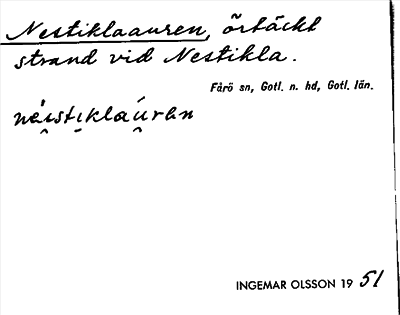 Nestiklaauren, örtäckt
strand vid Nestikla.
Fårö sn, Gotl. n. hd, Gotl. län.
né̯istı̣klaú̯ren
INGEMAR OLSSON 19 51